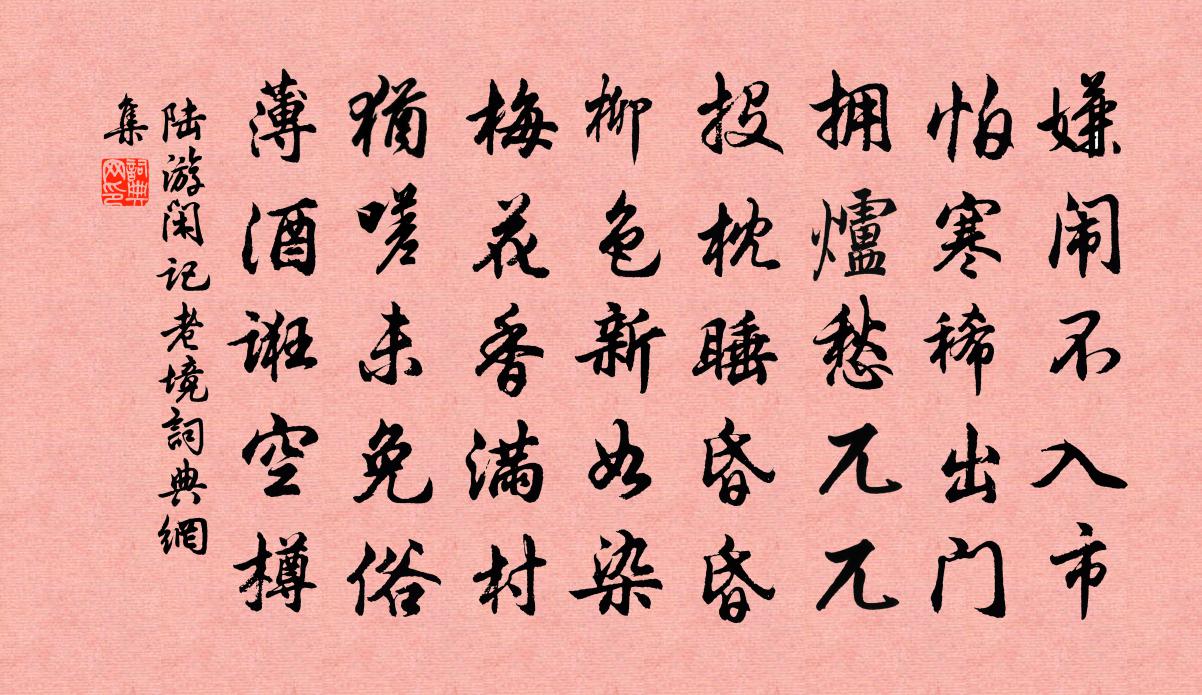 嫌闹不入市
怕寒稀出门
拥爐愁兀兀
投枕睡昏昏
柳色新如染
梅花香满村
猶嗟未免俗
薄酒诳空樽
陆游闲记老境詞典網
集
詞典网印